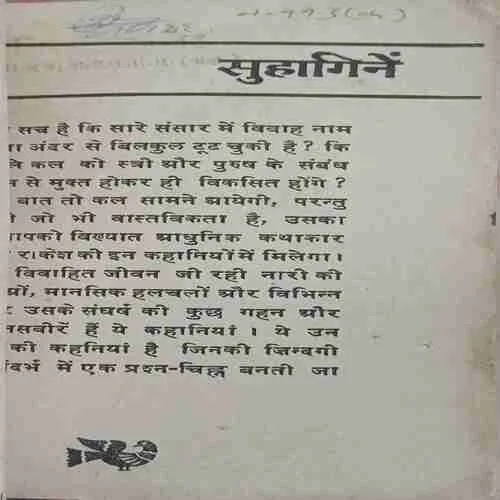 सुहागिनें
सच है कि सारे संसार में विवाह नाम
अंदर से बिलकुल टूट चुकी है ? कि
कल को स्त्री और पुरुष के संबंध
से मुक्त होकर ही विकसित होंगे ?
बात तो कल सामने आयेगी, परन्तु
जो भी वास्तविकता है, उसका
आपको विख्यात आधुनिक कथाकार
राकेश की इन कहानियों में मिलेगा।
विवाहित जीवन जी रही नारी की
मानसिक हलचलों और विभिन्न
उसके संघर्ष की कुछ गहन और
तसवीरें हैं ये कहानियां । ये उन
की कहनियां है जिनकी ज़िन्दगी
संदर्भ में एक प्रश्न-चिह्न बनती जा